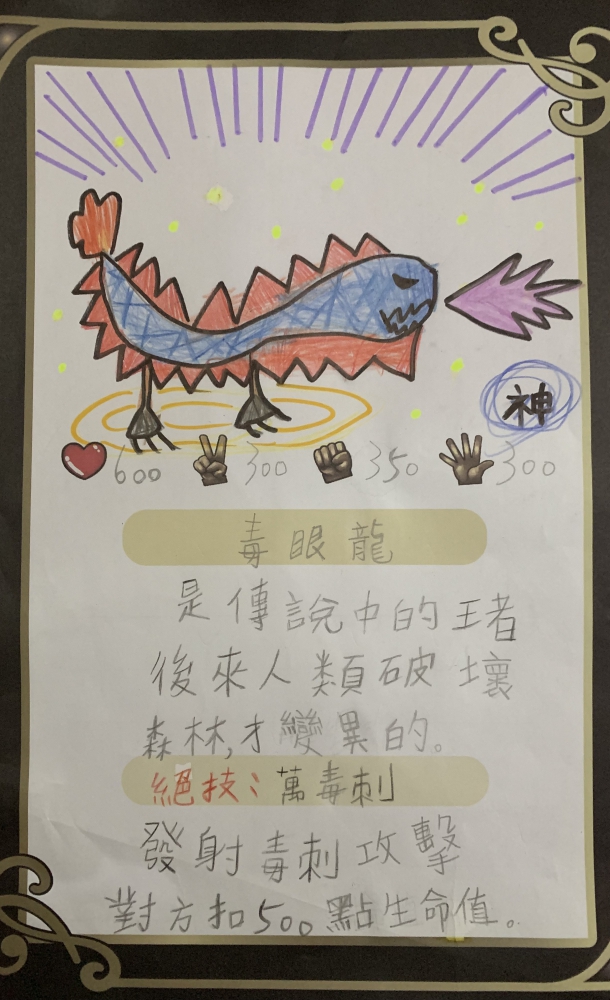 神
600 300 350 300
毒眼龍
是傳說中的王者
後來人類破壞
森林,才變異的。
絕技：萬毒刺
發射毒刺攻擊
對方扣500點生命值。